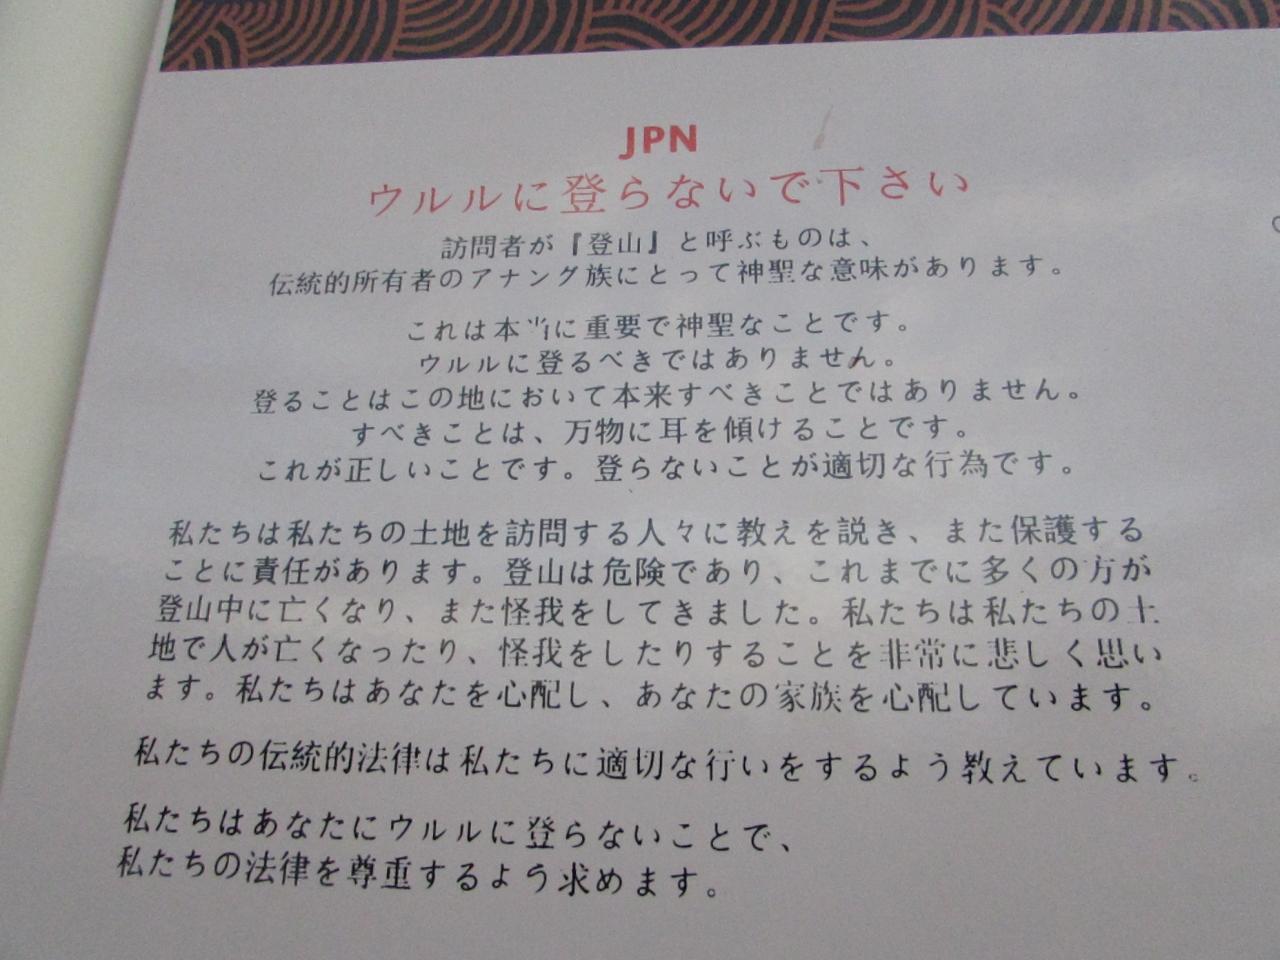 JPN
ウルルに登らないで下さい
訪問者が『登山』と呼ぶものは、
伝統的所有者のアナング族にとって神聖な意味があります。
これは本当に重要で神聖なことです。
ウルルに登るべきではありません。
登ることはこの地において本来すべきことではありません。
すべきことは、万物に耳を傾けることです。
これが正しいことです。登らないことが適切な行為です。
私たちは私たちの土地を訪問する人々に教えを説き、また保護する
ことに責任があります。登山は危険であり、これまでに多くの方が
登山中に亡くなり、また怪我をしてきました。私たちは私たちの土
地で人が亡くなったり、怪我をしたりすることを非常に悲しく思い
ます。私たちはあなたを心配し、あなたの家族を心配しています。
私たちの伝統的法律は私たちに適切な行いをするよう教えています。
私たちはあなたにウルルに登らないことで、
私たちの法律を尊重するよう求めます。